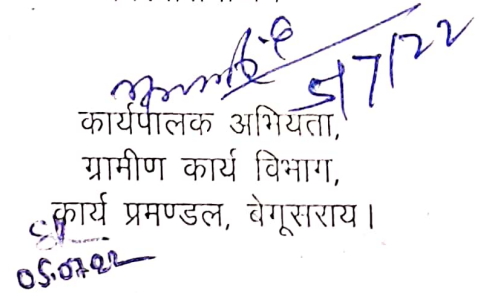 5/7/22
कार्यपालक अभियता,
ग्रामीण कार्य विभाग,
कार्य प्रमण्डल, बेगूसराय।
05.07.22